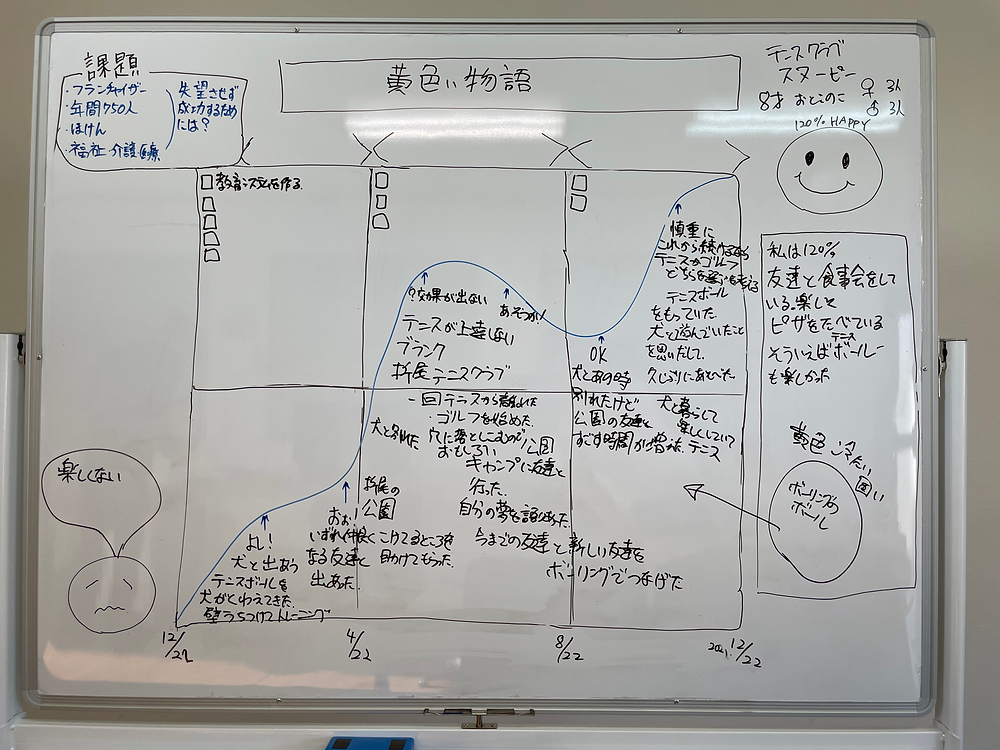 課題
・フランチャイザー
・年間750人
・ほけん
・福祉・介護医療
失望させず
成功するため
には？
黄色い物語
テニスクラブ
スヌーピー
8才 おとこのこ
♀ 3人
♂ 3人
120% HAPPY
教育システムを作る
?効果が出ない
テニスが上達しない
ブランク
折尾テニスクラブ
あそっか！
OK
犬とあの時
別れたけど
公園の友達と
すごす時間が増えた。テニス
慎重に
これから続けるなら
テニスかゴルフ
どちらを選ぶを考える
テニスボール
をもっていた。
犬と遊んでいたこと
を思いだして。
久しぶりにあとべった
犬と暮らして
楽しくしていて
一回テニスから離れた
・ゴルフを始めた。
穴に落としこむので
おもしろい
公園
キャンプに友達と
行った。
自分の夢を語りあった。
今までの友達と新しい友達を
ボーリングでつなげた
犬と別れた
折尾の
公園
おぉ！
いずれ仲良く
なる友達と
出あった。
こけてるところを
助けてもらった。
よし！
犬と出あう
テニスボールを
犬がくわえてきた。
壁うちつけてトレーニング
楽しくない
私は120%
友達と食事会をして
いる。楽しく
ピザをたべている
テニス
そういえばボールー
も楽しかった
黄色 冷たい
固い
ボーリングの
ボール
12/22
4/22
8/22
2021. 12/22